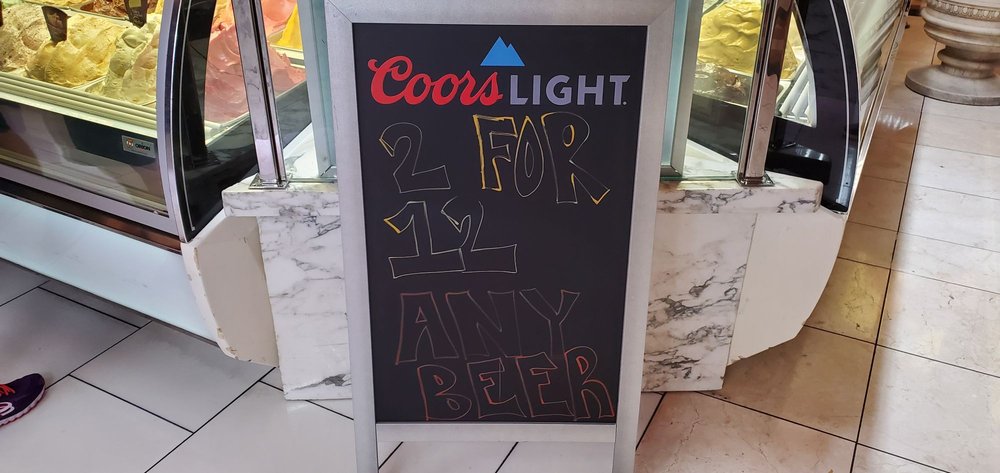 Coors LIGHT
2 FOR
12
ANY
BEER